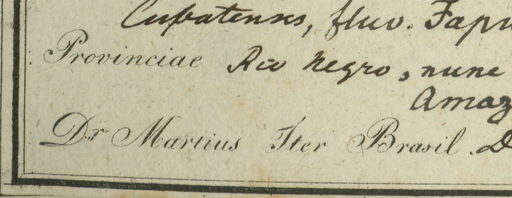 Cubatenses, fluv. Japu
Provinciae Rio Negro, nunc
Amaz
Dr Martius Iter Brasil. D